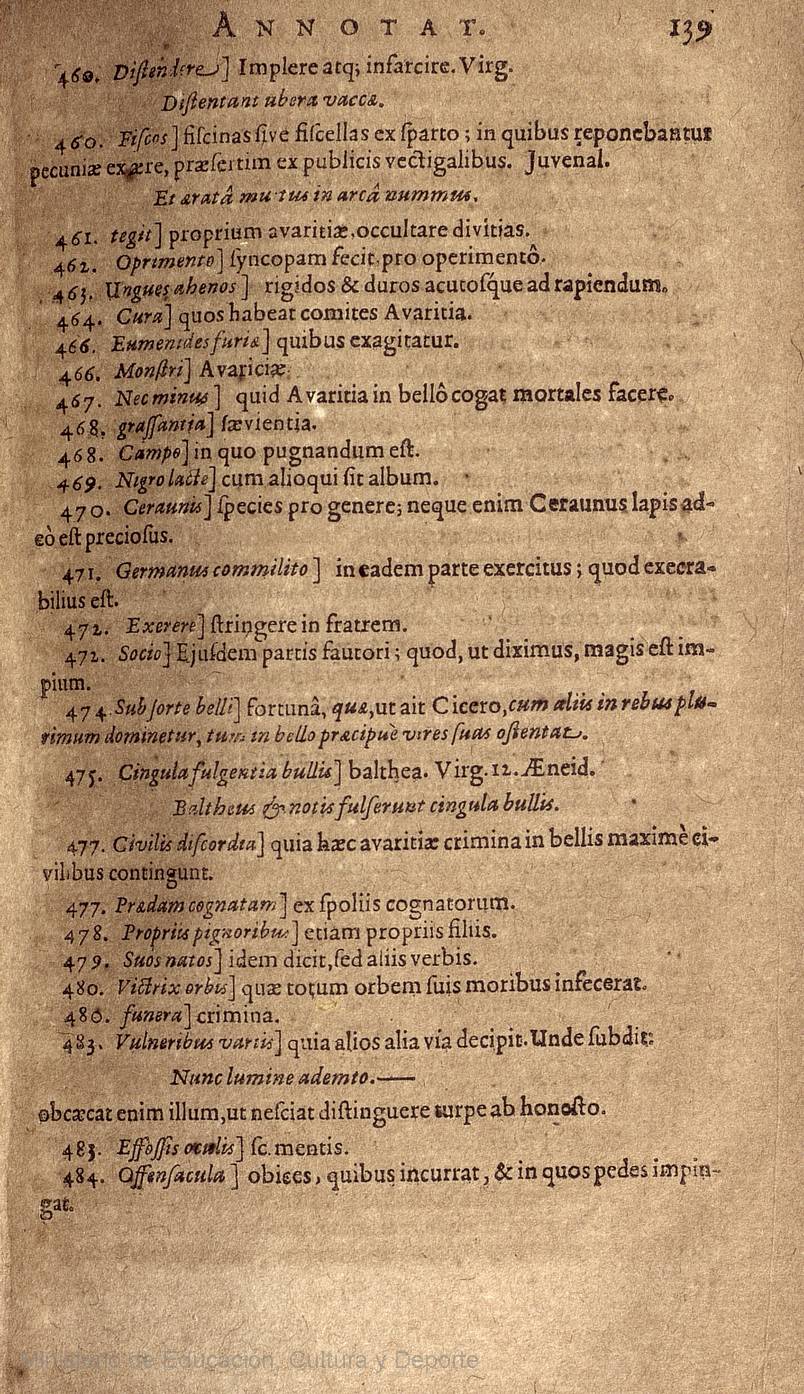 ANNOTAT. 139
460. Diſtendere] Implere atq; infarcire. Virg.
Diſtentant ubera vaccæ.
460. Fiſcos] fiſcinas ſive fiſcellas ex ſparto; in quibus reponebantur
pecuniæ ex ære, præſertim ex publicis vectigalibus. Juvenal.
Et æratâ mutus in arcâ nummus.
461. tegit] proprium avaritiæ, occultare divitias.
462. Oprimento] ſyncopam fecit, pro operimentô.
463. Ungues ahenos] rigidos & duros acutoſque ad rapiendum.
464. Cura] quos habeat comites Avaritia.
466. Eumenides furiæ] quibus exagitatur.
466. Monſtri] Avariciæ.
467. Nec minus] quid Avaritia in bellô cogat mortales facere.
468. graſſantia] ſævientia.
468. Campo] in quo pugnandum eſt.
469. Nigro lacte] cum alioqui ſit album.
470. Ceraunis] ſpecies pro genere; neque enim Ceraunus lapis ad-
eò eſt precioſus.
471. Germanus commilito] in eadem parte exercitus; quod execra-
bilius eſt.
472. Exerere] ſtringere in fratrem.
472. Socio] Ejuſdem partis fautori; quod, ut diximus, magis eſt im-
pium.
474. Sub ſorte belli] fortunâ, quæ, ut ait Cicero, cum aliis in rebus plu-
rimum dominetur, tum in bello præcipuè vires ſuas oſtentat.
475. Cingula fulgentia bullis] balthea. Virg. 12. Æneid.
Baltheus & notis fulſerunt cingula bullis.
477. Civilis diſcordia] quia hæc avaritiæ crimina in bellis maximè ci-
vilibus contingunt.
477. Prædam cognatam] ex ſpoliis cognatorum.
478. Propriis pignoribus] etiam propriis filiis.
479. Suos natos] idem dicit, ſed aliis verbis.
480. Victrix orbis] quæ totum orbem ſuis moribus infecerat.
480. funera] crimina.
483. Vulneribus variis] quia alios alia via decipit. Unde ſubdit:
Nunc lumine ademto.—
obcæcat enim illum, ut neſciat diſtinguere turpe ab honeſto.
483. Effoſſis oculis] ſc. mentis.
484. Offenſacula] obices, quibus incurrat, & in quos pedes impin-
gat.
Ministerio de Educación, Cultura y Deporte